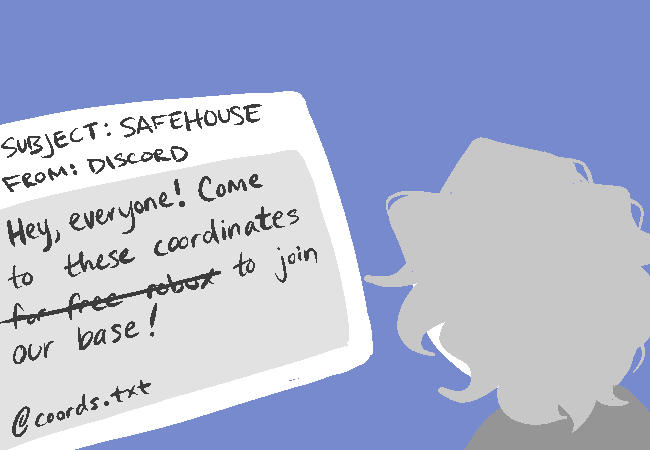 SUBJECT: SAFEHOUSE
FROM: DISCORD
Hey, everyone! Come
to these coordinates
for free robux to join
our base!
@coords.txt